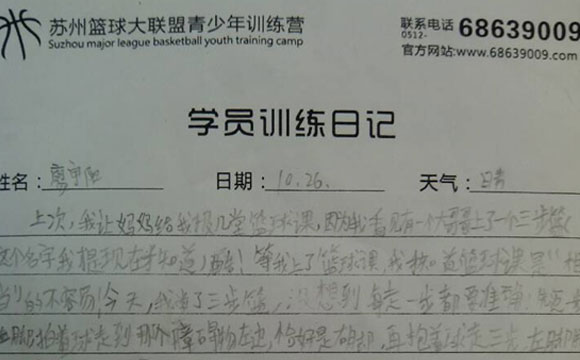 苏州篮球大联盟青少年训练营
Suzhou major league basketball youth training camp
联系电话 0512- 68639009
官方网站:www.68639009.com
学员训练日记
姓名: 廖宇阳 日期: 10.26. 天气: 日青
上次,我让妈妈给我报几堂篮球课,因为我看见有一个大哥上了一个三步篮(
这个名字我是现在才知道)酷!等我上了篮球课,我才知道篮球课是"相
当"的不容易!今天,我学了三步篮,没想到每走一步都要准确
抱着球走到那个障碍物左边,恰好是右脚,再抱着球走三步,左脚